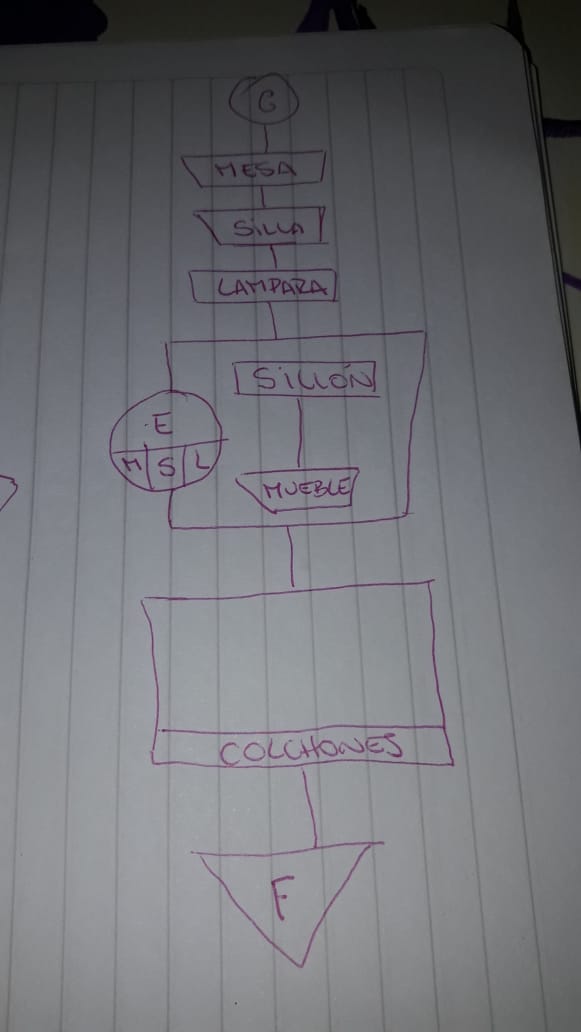 C
MESA
SILLA
LAMPARA
SILLÓN
E
M S L
MUEBLE
COLCHONES
F